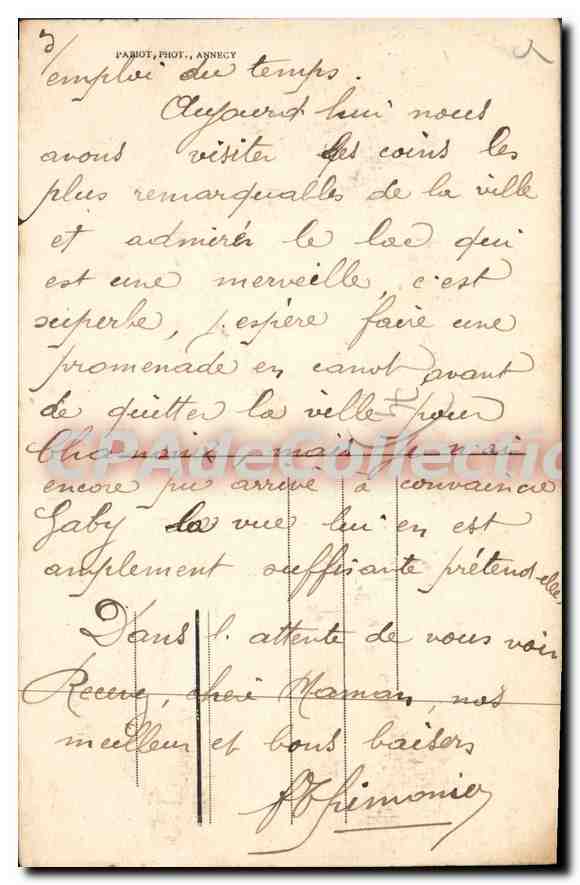 PARIOT, PHOT., ANNECY
emploi du temps.
Aujourd hui nous
avons visiter les coins les
plus remarquables de la ville
et admirés le lac qui
est une merveille, c'est
superbe, j'espère faire une
promenade en canot avant
de quitter la ville pour
Chamonix, mais je n'ai
encore pu arrivé à convaincre
Gaby la vue lui en est
amplement suffisante prétend-elle,
Dans l'attente de vous voir
Recevez, chère Maman, nos
meilleur et bons baisers
CPAdeCollection